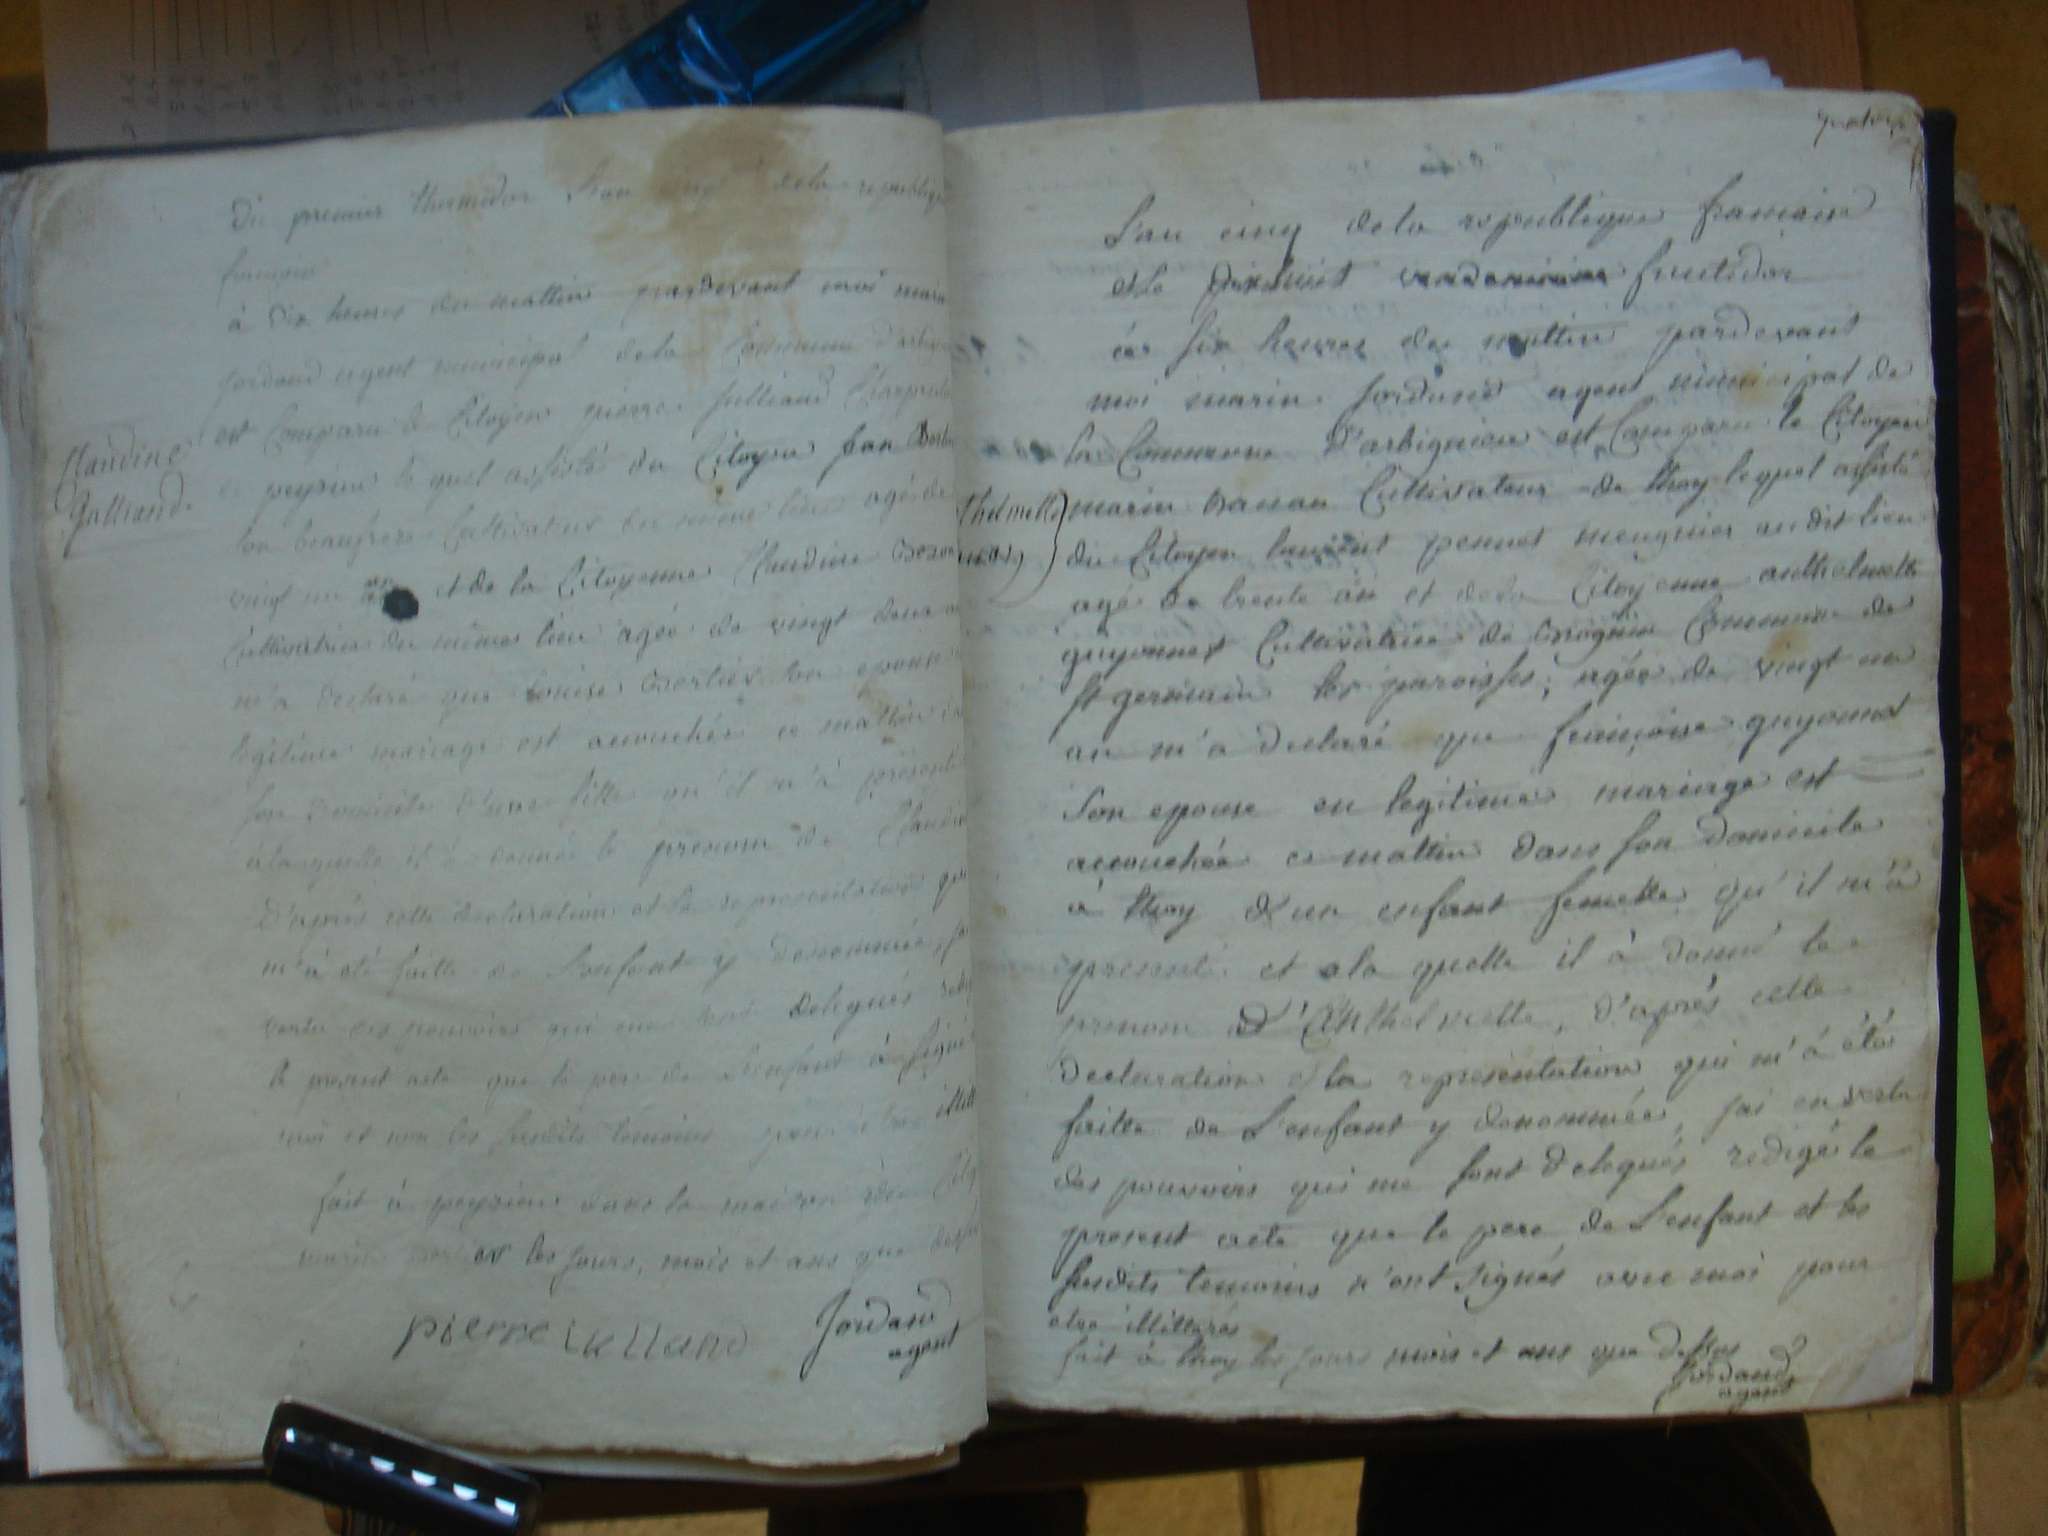 Claudine
Julliand
Du premier thermidor l'an cinq de la republique
francaise
à dix heures du mattin pardevant moi marin
Jordand agent municipal de la Commune d'arbign
est Comparu le Citoyen pierre Julliand Charpentie
de peyrieu le quel assisté du Citoyen Jean
son beaufrere Cultivateur du même lieu agé de
vingt un an et de la Citoyenne Claudine
Cultivatrice du même lieu agée de vingt deux an
m'a declaré que Louise son epouse
legitime mariage est accouchée ce mattin
son domicile d'une fille qu'il m'à presenté
à la quelle il à donné le prenom de Claudin
D'aprés cette declaration et la representation que
m'à eté faitte de L'enfant y denommée, jai
vertu des pouvoirs qui me sont delegués redig
le present acte que le pere de L'enfant à signé
moi et non les susdits temoins pour être illitt
fait à peyrieu dans la maison du
les jours, mois et ans que dessu
pierre iulliand Jordand
agent
quatorze
L'an cinq de la republique francaise
et le dixhuit fructidor
à six heures du mattin pardevant
moi marin Jordand agent municipal de
la Commune D'arbignieu est Comparu le Citoyen
thelmette marin Cultivateur de thoy lequel assisté
du Citoyen laurent pennet meugnier au dit lieu
agé de trente an et de la Citoyenne anthelmette
guyonnet Cultivatrice de Commune de
st germain les paroisses, agée de vingt un
an m'a declaré que francoise guyonnet
son epouse en legitime mariage est
accouchée ce mattin dans son domicile
à thoy d'un enfant femelle qu'il m'à
presenté et a la quelle il à donné le
prenom D'Anthelmette, d'aprés cette
declaration et la representation qui m'à étée
faitte de L'enfant y denommée, jai en vertu
des pouvoirs qui me sont delegués redigé le
present acte que le pere de L'enfant et les
susdits temoins n'ont signés avec moi pour
etre illitterés
fait à thoy les jours mois et ans que dessus
Jordand
agent